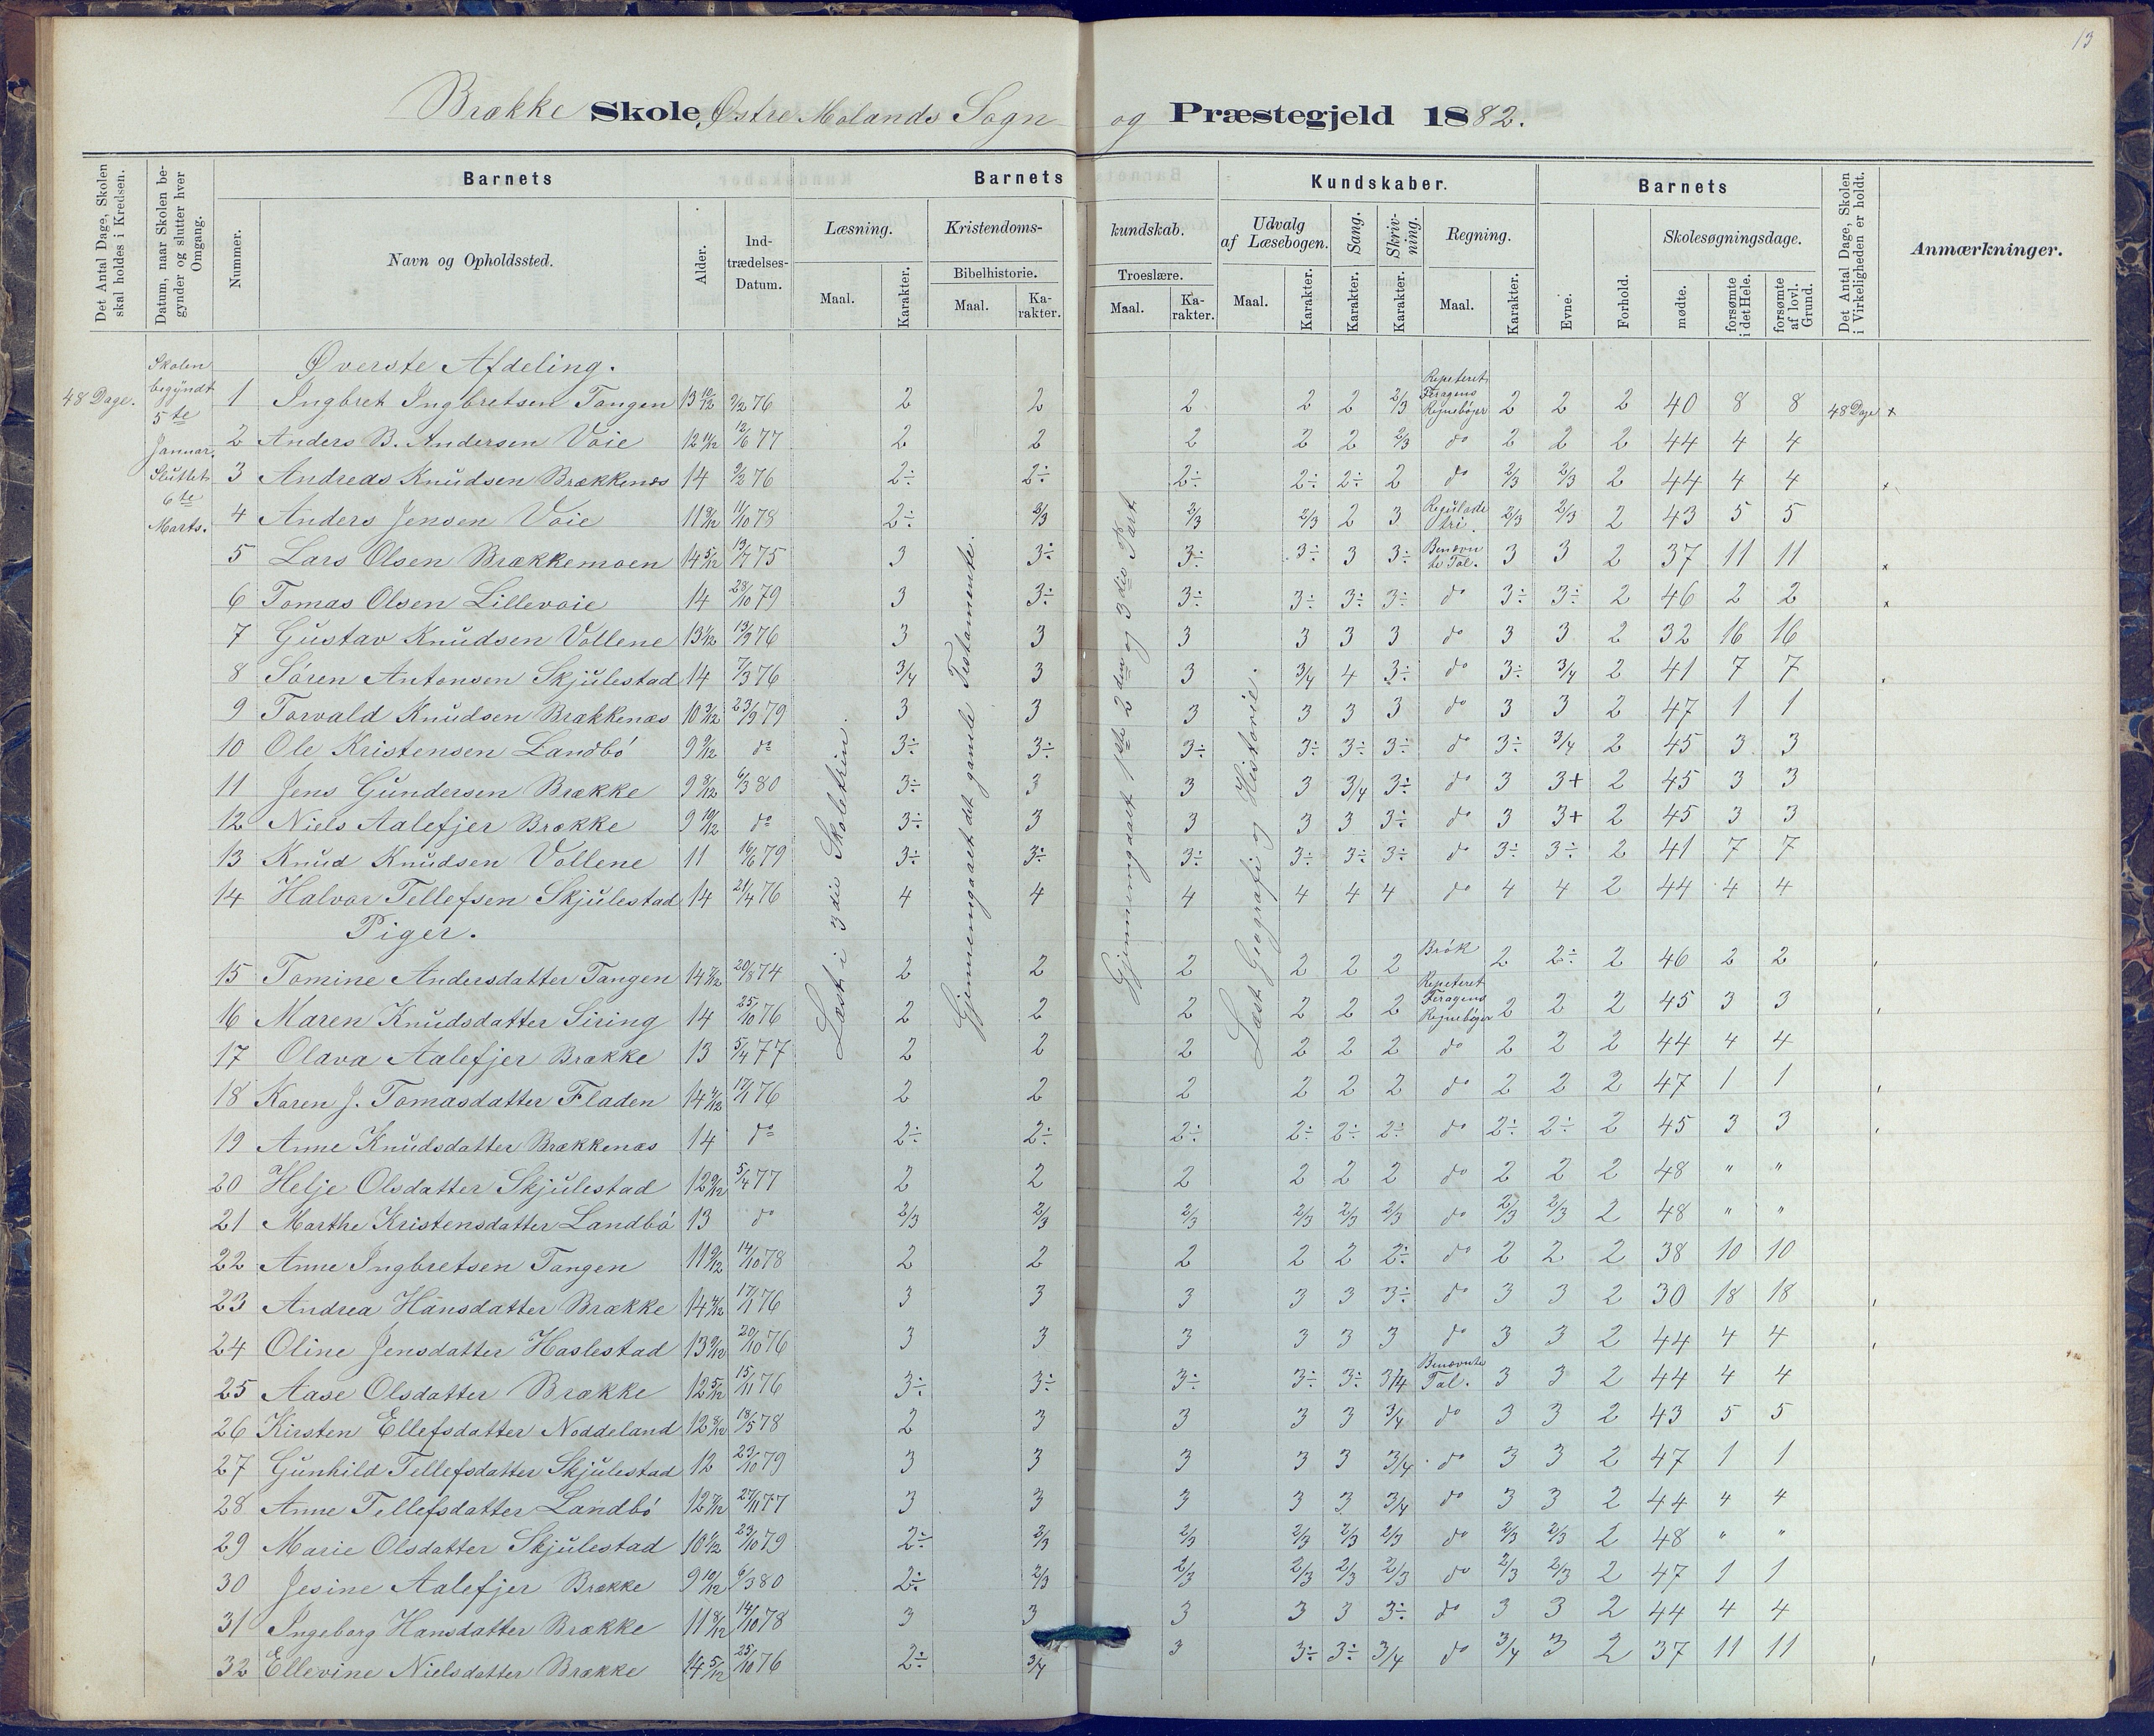 13
Brække Skole, Østre Molands Sogn og Præstegjeld 1882.
Det Antal Dage, Skolen skal holdes i Kredsen.
Datum, naar Skolen begynder og slutter hver Omgang.
Barnets
Nummer.
Navn og Opholdssted.
Alder.
Indtrædelses-Datum.
Barnets Kundskaber.
Læsning.
Maal. Karakter.
Kristendomskundskab.
Bibelhistorie.
Maal. Karakter.
Troeslære.
Maal. Karakter.
Udvalg af Læsebogen.
Maal. Karakter.
Sang.
Karakter.
Skrivning.
Karakter.
Regning.
Maal. Karakter.
Barnets
Evne.
Forhold.
Skolesøgningsdage.
mødte.
forsømte i det Hele.
forsømte af lovl. Grund.
Det Antal Dage, Skolen i Virkeligheden er holdt.
Anmærkninger.
48 Dage.
Skolen begyndt 5te Januar. Sluttet 6te Marts.
Læst i 3die Skoletrin.
Gjennemgaaet det gamle Testamente.
Gjennemgaaet 1ste 2den og 3die Part
Læst Geografi og Historie.
Øverste Afdeling.
1 Ingbret Ingbretsen Tangen 13 10/12 9/2 76 2 2 2 2 2 2/3 Repeteret Feragens Regnebøger 2 2 2 40 8 8 48 Dage x
2 Anders B. Andersen Voie 12 11/12 12/6 77 2 2 2 2 2 2/3 do 2 2 2 44 4 4
3 Andreas Knudsen Brækkenæs 14 9/2 76 2÷ 2÷ 2÷ 2÷ 2÷ 2 do 2/3 2/3 2 44 4 4 x
4 Anders Jensen Voie 11 9/12 11/10 78 2÷ 2/3 2/3 2/3 2 3 Reguladetri. 2/3 2/3 2 43 5 5
5 Lars Olsen Brækkemoen 14 5/12 13/7 75 3 3÷ 3÷ 3÷ 3 3÷ Benævnte Tal. 3 3 2 37 11 11 x
6 Tomas Olsen Lillevoie 14 28/10 79 3 3÷ 3÷ 3÷ 3÷ 3÷ do 3÷ 3÷ 2 46 2 2 x
7 Gustav Knudsen Vollene 13 1/12 13/9 76 3 3 3 3 3 3 do 3 3 2 32 16 16
8 Sören Antonsen Skjulestad 14 7/3 76 3/4 3 3 3/4 4 3÷ do 3÷ 3/4 2 41 7 7
9 Torvald Knudsen Brækkenæs 10 3/12 23/9 79 3 3 3 3 3 3 do 3 3 2 47 1 1
10 Ole Kristensen Landbö 9 9/12 do 3÷ 3÷ 3÷ 3÷ 3÷ 3÷ do 3÷ 3/4 2 45 3 3
11 Jens Gundersen Brække 9 8/12 6/3 80 3÷ 3 3 3 3/4 3÷ do 3 3+ 2 45 3 3
12 Niels Aalefjer Brække 9 10/12 do 3÷ 3 3 3 3 3÷ do 3 3+ 2 45 3 3
13 Knud Knudsen Vollene 11 16/6 79 3÷ 3÷ 3÷ 3÷ 3÷ 3÷ do 3÷ 3÷ 2 41 7 7
14 Halvor Tellefsen Skjulestad 14 21/4 76 4 4 4 4 4 4 do 4 4 2 44 4 4
Piger.
15 Tomine Andersdatter Tangen 14 7/12 20/8 74 2 2 2 2 2 2 Brök 2 2÷ 2 46 2 2
16 Maren Knudsdatter Siring 14 25/10 76 2 2 2 2 2 2 Repeteret Feragens Regnebøger 2 2 2 45 3 3
17 Olava Aalefjer Brække 13 5/4 77 2 2 2 2 2 2 do 2 2 2 44 4 4
18 Karen J. Tomasdatter Fladen 14 4/12 17/1 76 2 2 2 2 2 2 do 2 2 2 47 1 1
19 Anne Knudsdatter Brækkenæs 14 do 2÷ 2÷ 2÷ 2÷ 2÷ 2÷ do 2÷ 2÷ 2 45 3 3
20 Helje Olsdatter Skjulestad 12 9/12 5/4 77 2 2 2 2 2 2 do 2 2 2 48 " "
21 Marthe Kristensdatter Landbö 13 do 2/3 2/3 2/3 2/3 2/3 2/3 do 2/3 2/3 2 48 " "
22 Anne Ingbretsen Tangen 11 9/12 14/10 78 2 2 2 2 2 2÷ do 2 2 2 38 10 10
23 Andrea Hansdatter Brække 14 4/12 17/1 76 3 3 3 3 3 3÷ do 3 3 2 30 18 18
24 Oline Jensdatter Haslestad 13 9/12 20/10 76 3 3 3 3 3 3 do 3 3 2 44 4 4
25 Aase Olsdatter Brække 12 5/12 15/11 76 3÷ 3÷ 3÷ 3÷ 3÷ 3/4 Benævnte Tal. 3 3 2 44 4 4
26 Kirsten Ellefsdatter Noddeland 12 8/12 18/5 78 2 3 3 3 3 3/4 do 3 3 2 43 5 5
27 Gunhild Tellefsdatter Skjulestad 12 23/10 79 3 3 3 3 3 3/4 do 3 3 2 47 1 1
28 Anne Tellefsdatter Landbö 12 7/12 27/11 77 3 3 3 3 3 3/4 do 3 3 2 44 4 4
29 Marie Olsdatter Skjulestad 10 1/12 23/10 79 2÷ 2/3 2/3 2/3 2/3 2/3 do 2/3 2/3 2 48 " "
30 Jesine Aalefjer Brække 9 10/12 6/3 80 2÷ 2/3 2/3 2/3 2/3 2/3 do 2/3 2/3 2 47 1 1
31 Ingeborg Hansdatter Brække 11 8/12 14/10 78 3 3 3 3 3 3÷ do 3 3 2 44 4 4
32 Ellevine Nielsdatter Brække 14 5/12 25/10 76 2÷ 3/4 3 3÷ 3÷ 3/4 do 3/4 3 2 37 11 11